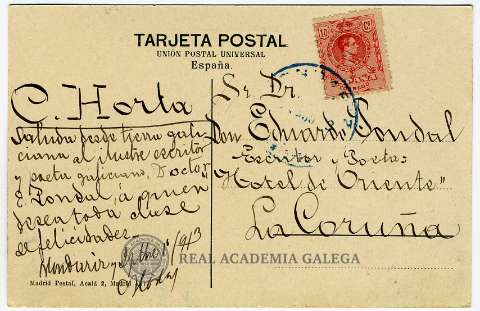 TARJETA POSTAL
UNIÓN POSTAL UNIVERSAL
España.
10 Cs
C. Horta
Saluda desde tierra gali-
ciana al ilustre escritor
y poeta galiciano, Doctor
E. Pondal, á quien
desea toda clase
de felicidades.
Mondariz
Sr. Dr.
Don Eduardo Pondal
Escritor y Poeta
"Hotel de Oriente"
La Coruña
REAL ACADEMIA GALEGA
Madrid Postal, Acalá 2, Madrid